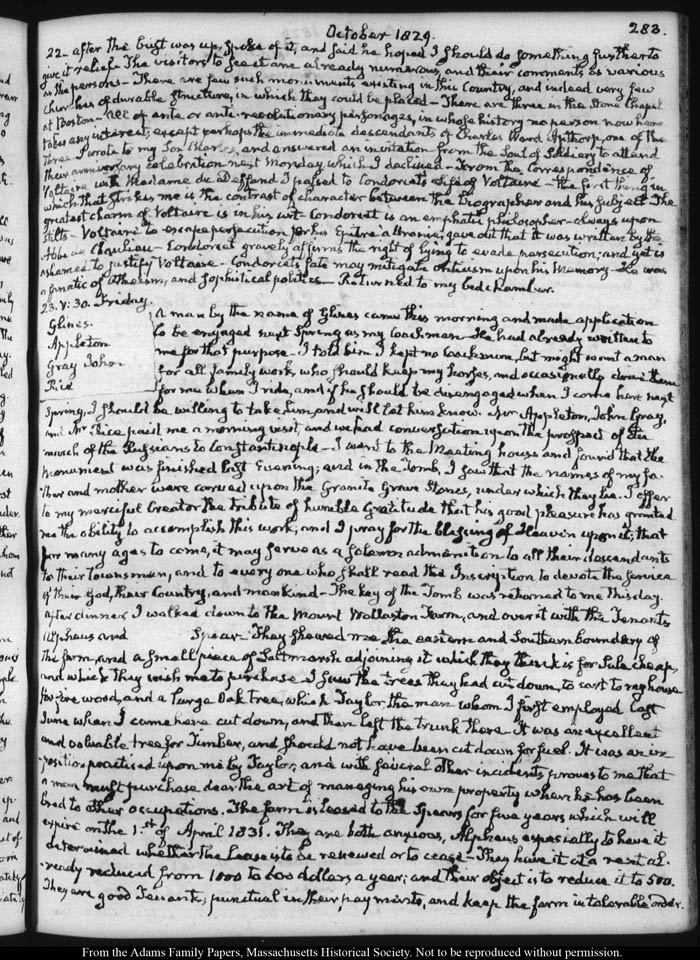 283.
October 1829.
22. after the bust was up, spoke of it, and said he hoped I should do something further to
give it relief. The visitors to see it are already numerous, and their comments as various
as the persons— There are few such monuments existing in this Country, and indeed very few
Churches of durable structure, in which they could be placed— There are three in the Stone Chapel
at Boston— All of ante or anti-revolutionary personages, in whose history no person now here
takes any interest; except perhaps the immediate descendants of Charles Ward Apthorp, one of the
three. I wrote to my Son Charles, and answered an invitation from the Soul of Soldiery to attend
their anniversary celebration next Monday, which I declined— From the Correspondence of
Voltaire with Madame du Deffand I passed to Condorcet's Life of Voltaire— the first thing in
which that strikes me is the contrast of character between the biographer and his subject. The
greatest charm of Voltaire is in his wit— Condorcet is an emphatic philosopher— always upon
stilts— Voltaire to escape persecution for his Epitre a Uranie, gave out that it was written by the
Abbé de Chaulieu— Condorcet gravely affirms the right of lying to evade persecution; and yet is
ashamed to justify Voltaire— Condorcets fate may mitigate criticism upon his Memory— He was
a fanatic of Atheism, and sophistical politics— Returned to my bedchamber.
23. V:30. Friday.
Glines.
Appleton
Gray John
Rice
A man by the name of Glines came this morning and made application
to be engaged next Spring as my Coachman— He had already written to
me for that purpose— I told him I kept no Coachman, but might want a man
for all family work, who should keep my horses, and occasionally drive them
for me when I ride, and if he should be disengaged when I come here next
Spring, I should be willing to take him, and would let him know. Mr Appleton, John Gray,
and Mr Rice paid me a morning visit, and we had conversation upon the prospect of the
march of the Russians to Constantinople— I went to the Meeting house and found that the
monument was finished last Evening; and in the Tomb, I saw that the names of my fa-
ther and mother were carved upon the Granite Grave Stones, under which they lie. I offer
to my merciful Creator the tribute of humble Gratitude that his good pleasure has granted
me the ability to accomplish this work; and I pray for the blessing of Heaven upon it; that
for many ages to come, it may serve as a solemn admonition to all their descendants
to their Townsmen, and to every one who shall read the Inscription to devote the service
of their God, their Country, and mankind— The key of the Tomb was returned to me this day.
After dinner I walked down to the Mount Wollaston Farm, and over it with the Tenants
Alpheus and Spear. They showed me the eastern and Southern boundary of
the farm, and a small piece of Saltmarsh adjoining it which they think is for Sale cheap,
and which they wish me to purchase. I saw the trees they had cut down, to cart to my house
for fire wood, and a large Oak tree, which Taylor, the man whom I first employed last
June when I came here cut down, and then left the trunk there— It was an excellent
and valuable tree for Timber, and should not have been cut down for fuel. It was an im-
position practised upon me by Taylor; and with several other incidents proves to me that
a man must purchase dear the art of managing his own property when he has been
bred to other occupations. The farm is leased to the Spears for five years which will
expire on the 1.st of April 1831. They are both anxious, Alpheus especially to have it
determined whether the Lease is to be renewed or to cease— They have it at a rent al-
ready reduced from 1000 to 600 dollars a year; and their object is to reduce it to 500.
They are good Tenants; punctual in their payments, and keep the farm in tolerable order.
From the Adams Family Papers, Massachusetts Historical Society. Not to be reproduced without permission.